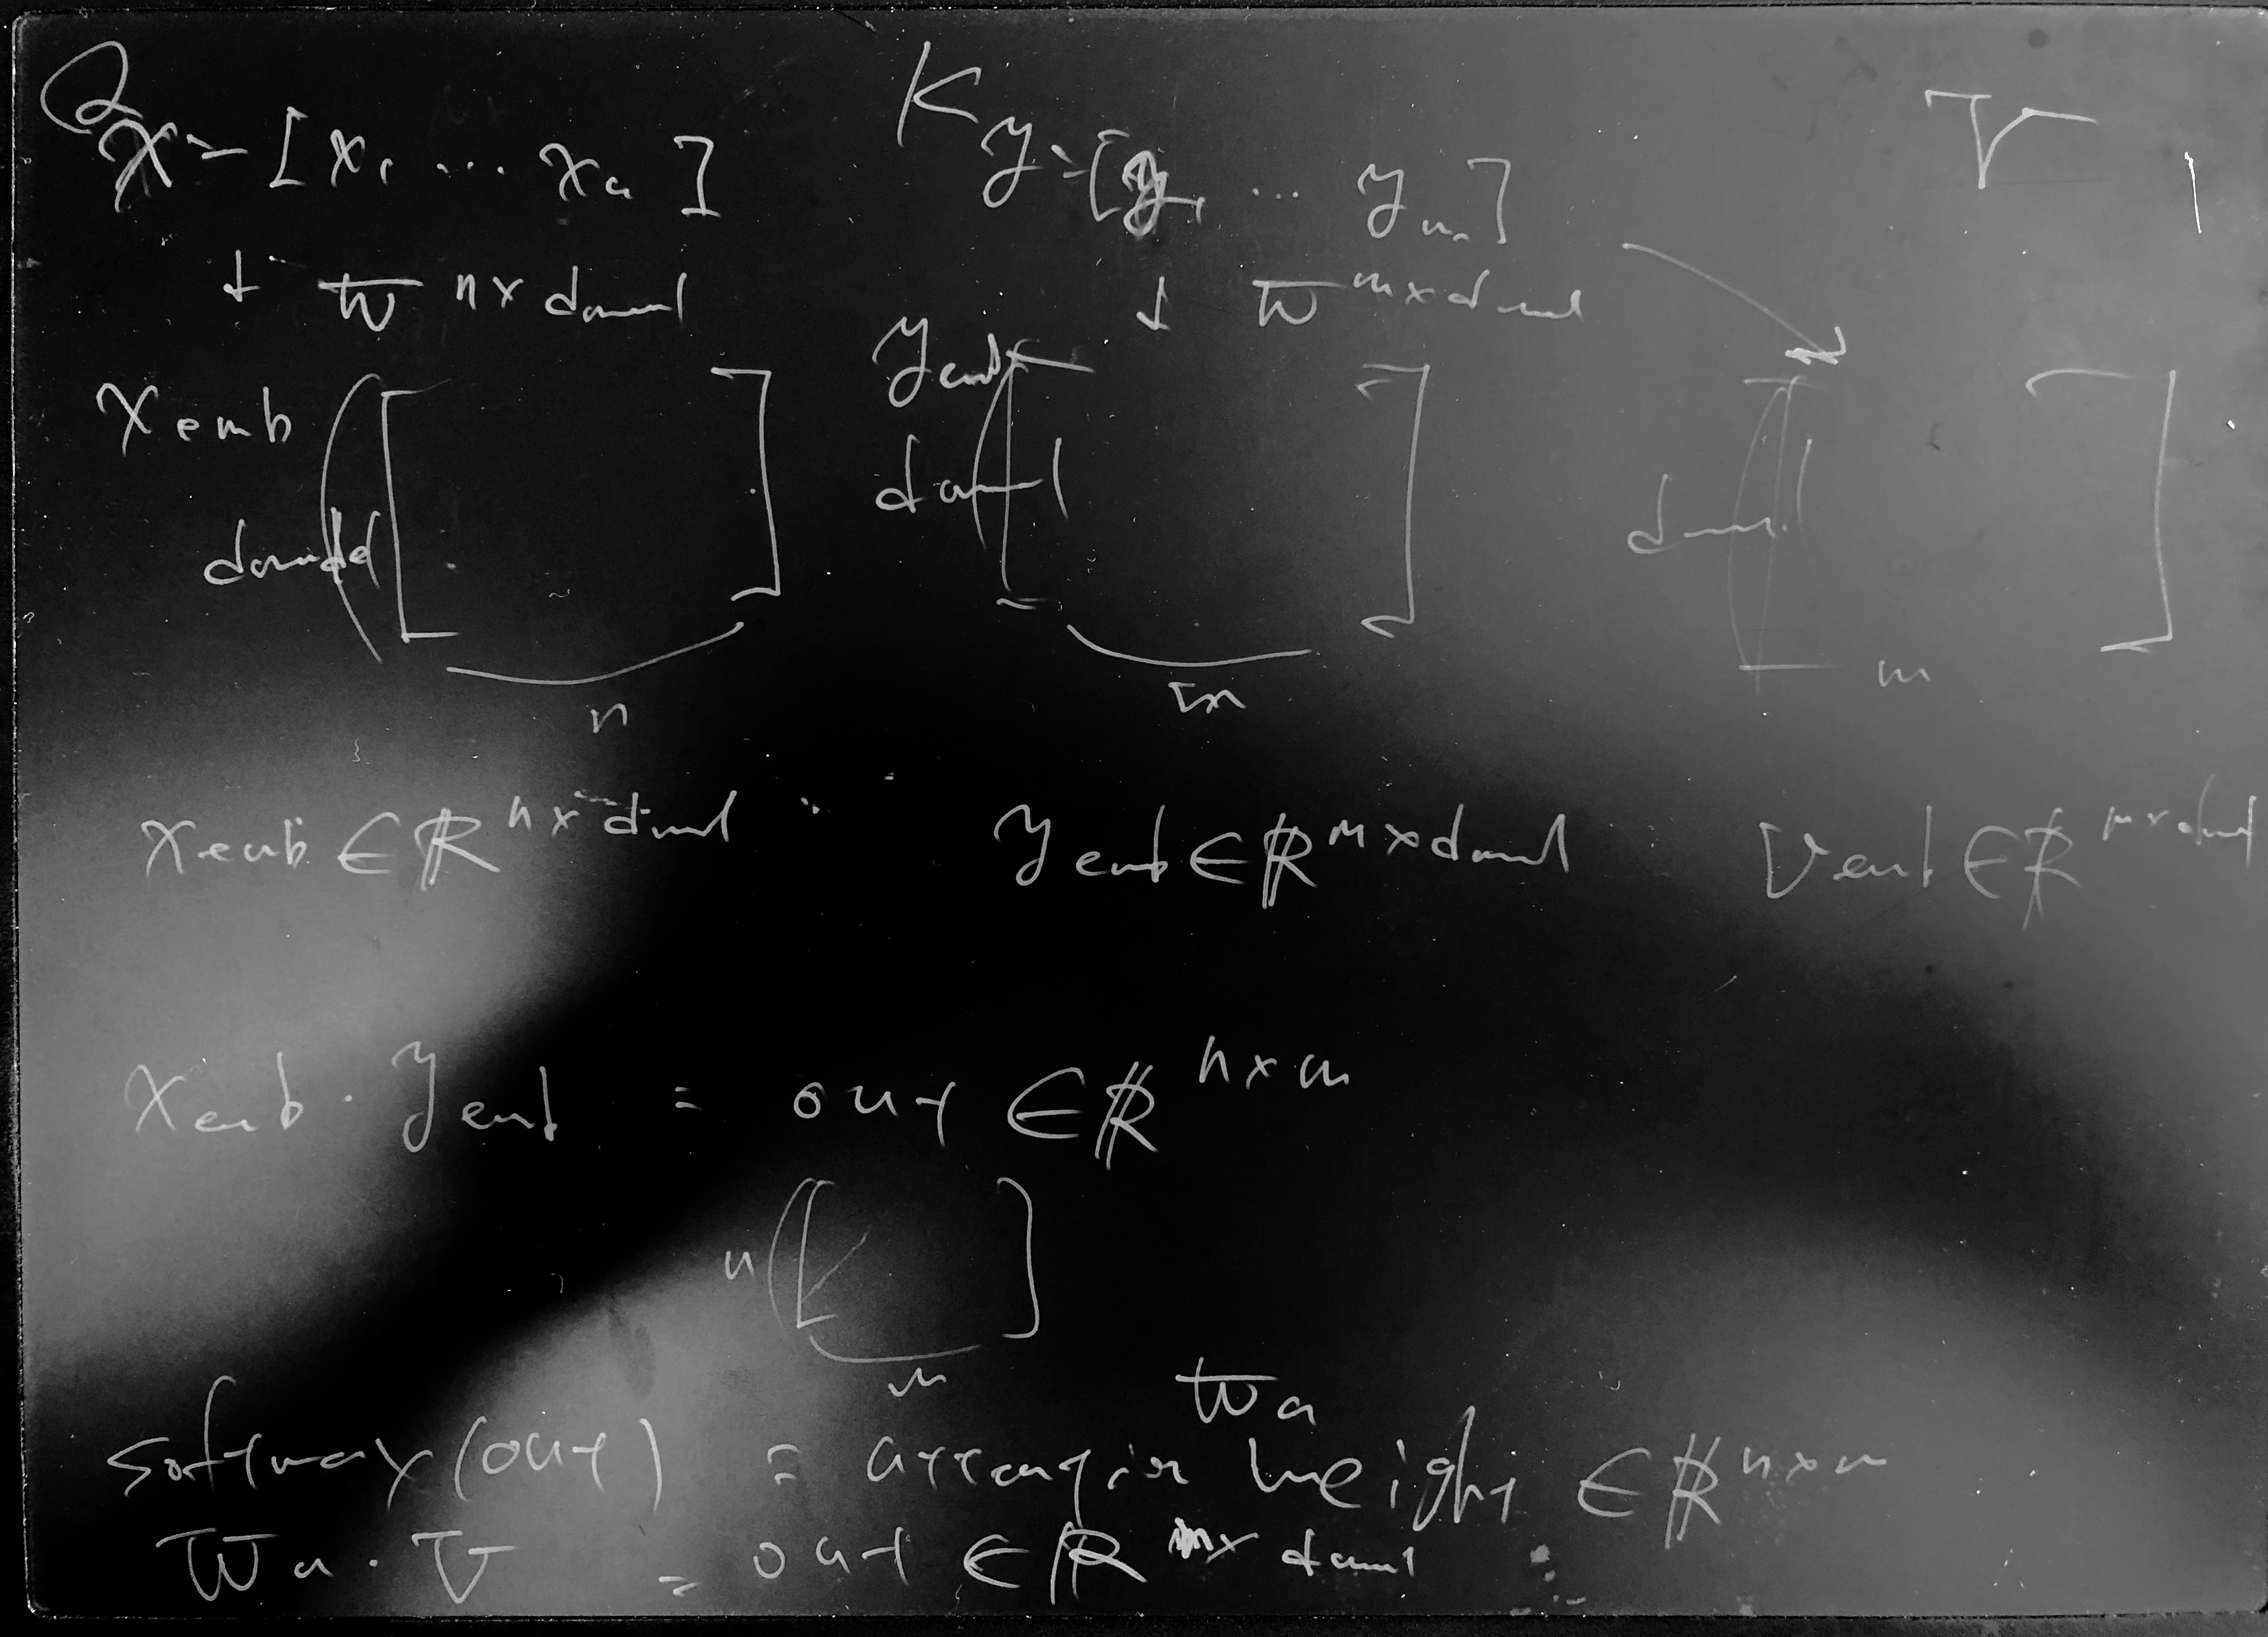 Q K V
X = [x₁ ... xₙ] y = [y₁ ... yₘ]
↓ W n×dmodel ↓ W m×dmodel
Xemb yemb
dmodel dmodel dmodel
n m m
Xemb ∈ ℝ n×dmodel yemb ∈ ℝ m×dmodel Vemb ∈ ℝ m×dmodel
Xemb · yemb = out ∈ ℝ n×m
n
m
Wa
softmax(out) = attention weight ∈ ℝ n×m
Wa · V = out ∈ ℝ n×dmodel